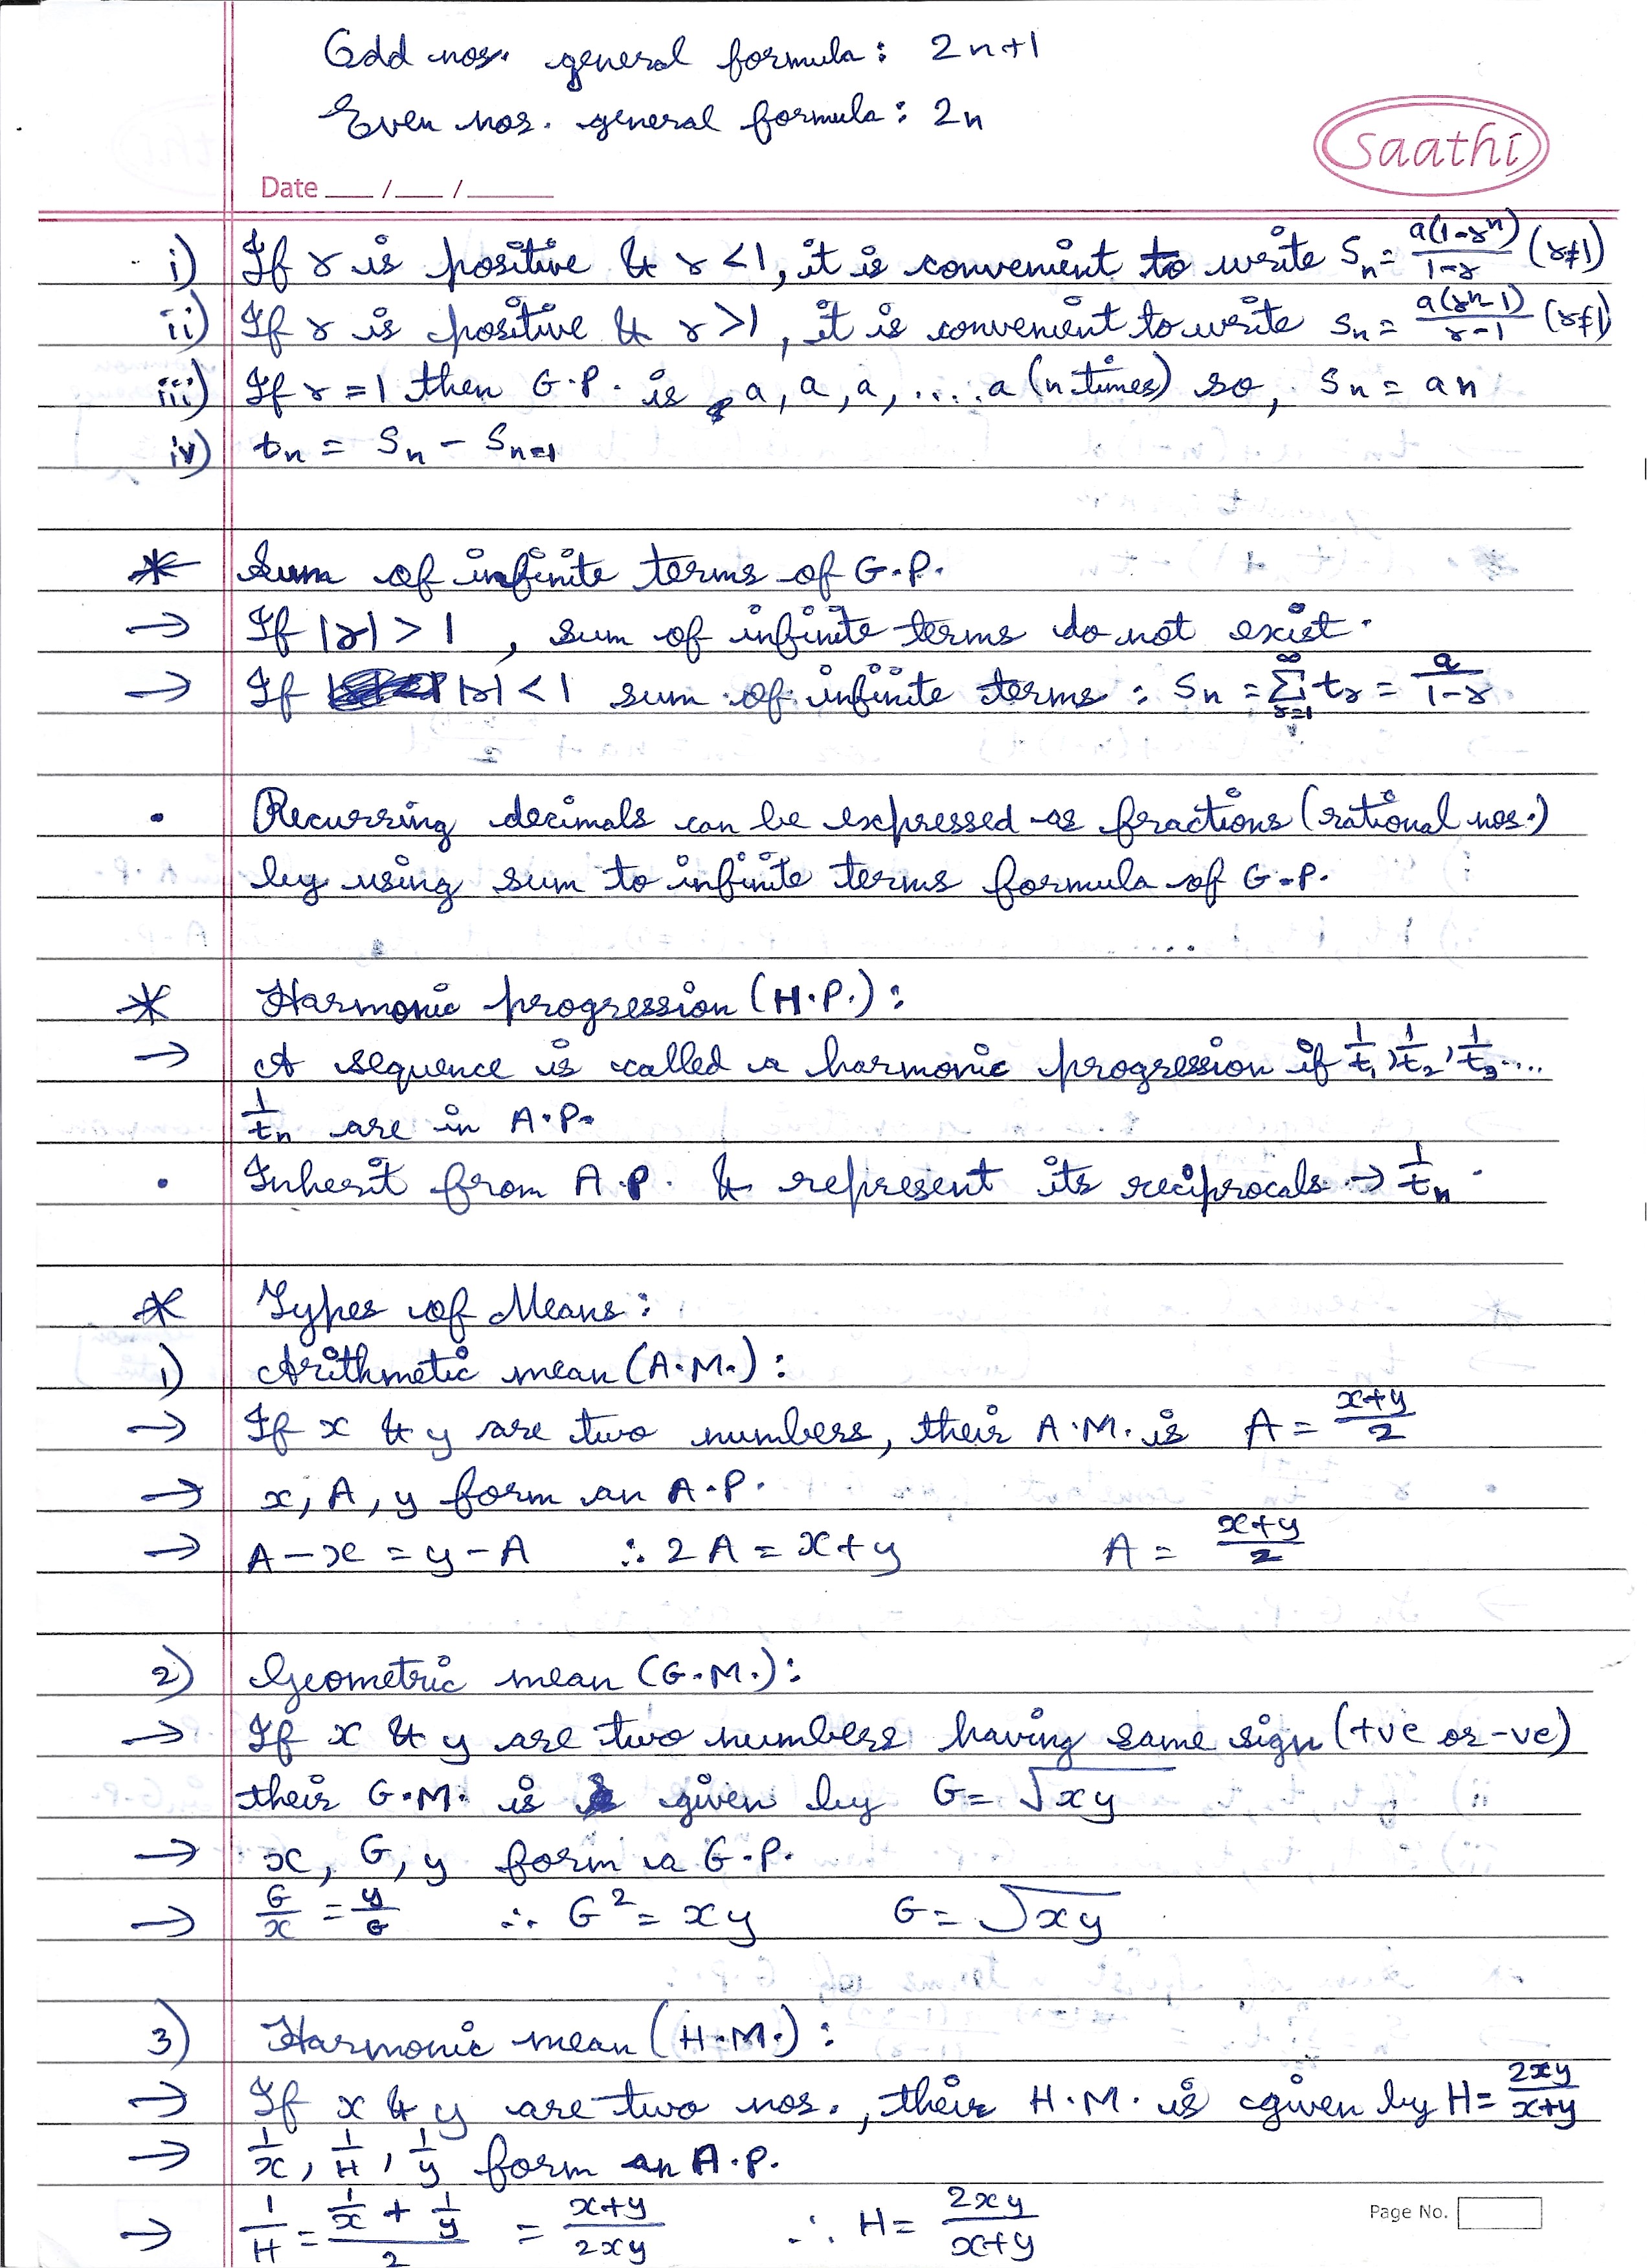 Odd nos. general formula: 2n+1
Even nos. general formula: 2n
saathi
Date ___/___/_____
i) If r is positive & r <1, it is convenient to write Sn = a(1-rⁿ)/1-r (r≠1)
ii) If r is positive & r >1, it is convenient to write Sn = a(rⁿ-1)/r-1 (r≠1)
iii) If r =1 then G.P. is a, a, a, .... a (n times) so, Sn = an
iv) tn = Sn - Sn-1
* Sum of infinite terms of G.P.
→ If |r| > 1, sum of infinite terms do not exist.
→ If |r| < 1 sum of infinite terms : Sn = ∞Σr=1 tr = a/1-r
• Recurring decimals can be expressed as fractions (rational nos.)
by using sum to infinite terms formula of G.P.
* Harmonic progression (H.P.):
→ A sequence is called a harmonic progression if 1/t1, 1/t2, 1/t3....
1/tn are in A.P.
• Inherit from A.P. & represent its reciprocals → 1/tn.
* Types of Means:
1) Arithmetic mean (A.M.):
→ If x & y are two numbers, their A.M. is A = x+y/2
→ x, A, y form an A.P.
→ A-x = y-A ∴ 2A = x+y A = x+y/2
2) Geometric mean (G.M.):
→ If x & y are two numbers having same sign (+ve or -ve)
their G.M. is given by G = √xy
→ x, G, y form a G.P.
→ G/x = y/G ∴ G² = xy G = √xy
3) Harmonic mean (H.M.):
→ If x & y are two nos., their H.M. is given by H = 2xy/x+y
→ 1/x, 1/H, 1/y form an A.P.
→ 1/H = 1/x + 1/y/2 = x+y/2xy ∴ H = 2xy/x+y
Page No.